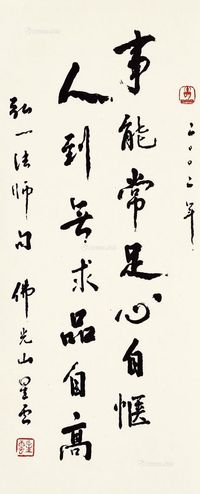 二〇〇二年
事能常足心自惬
人到无求品自高
弘一法师句 佛光山星云